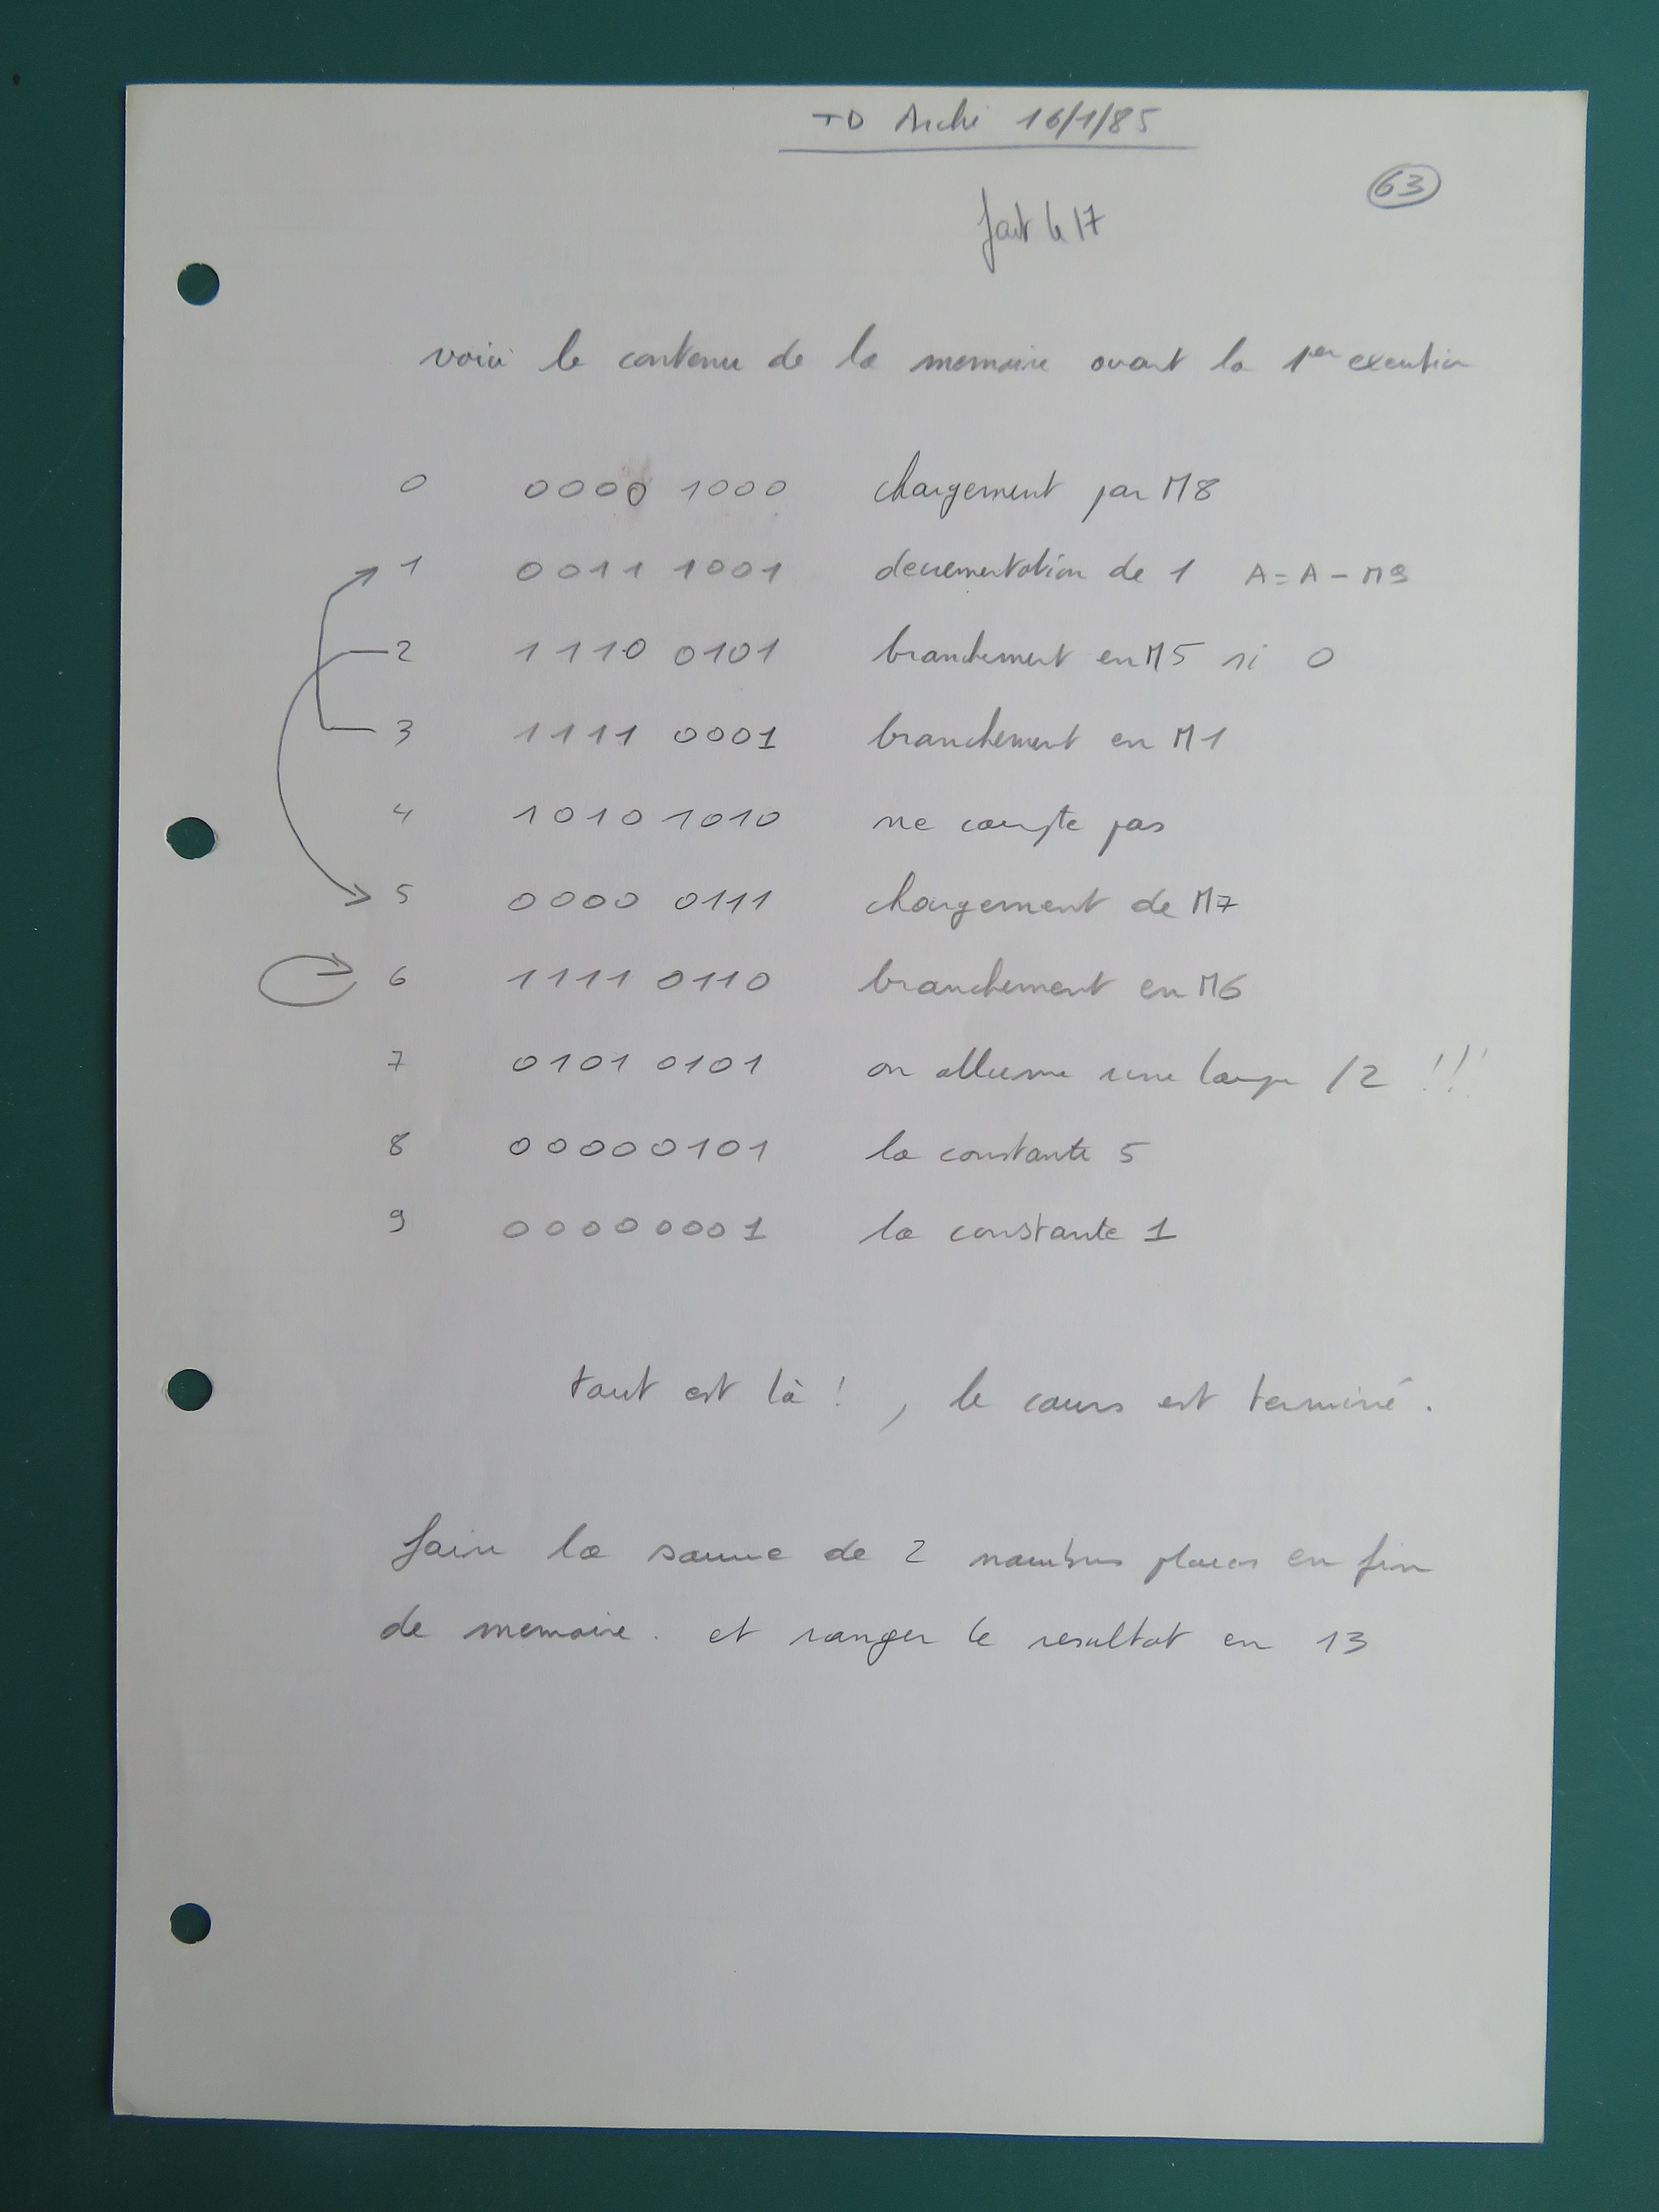 TD Archi 16/1/85
63
fait le 17
voici le contenu de la memoire avant la 1er execution
0 0000 1000 chargement par M8
1 0011 1001 decrementation de 1 A = A - M9
2 1110 0101 branchement en M5 si 0
3 1111 0001 branchement en M1
4 1010 1010 ne compte pas
5 0000 0111 chargement de M7
6 1111 0110 branchement en M6
7 0101 0101 on allume une lampe /2 !!!
8 00000101 la constante 5
9 00000001 la constante 1
tout est là ! , le cours est terminé.
faire la somme de 2 nombres places en fin
de memoire. et ranger le resultat en 13